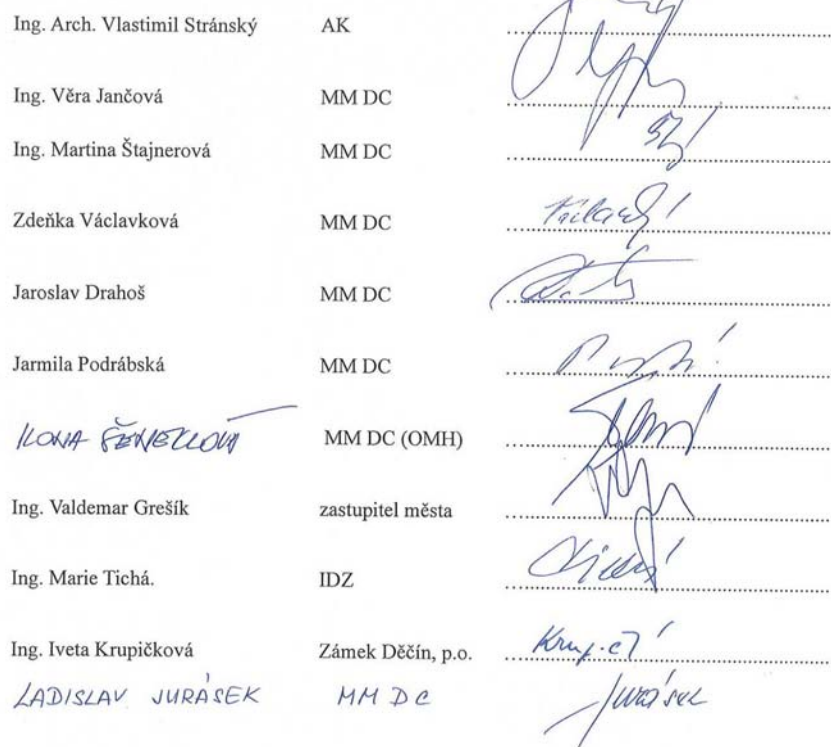 Ing. Arch. Vlastimil Stránský AK
Ing. Věra Jančová MM DC
Ing. Martina Štajnerová MM DC
Zdeňka Václavková MM DC
Jaroslav Drahoš MM DC
Jarmila Podrábská MM DC
ILONA MM DC (OMH)
Ing. Valdemar Grešík zastupitel města
Ing. Marie Tichá. IDZ
Ing. Iveta Krupičková Zámek Děčín, p.o.
LADISLAV JURÁSEK MM DC Jurásek